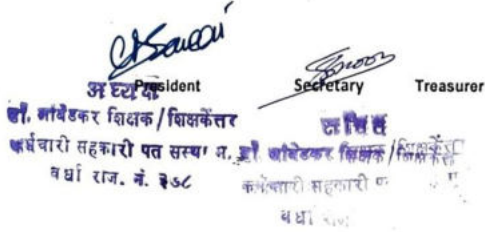 President Secretary Treasurer
अध्यक्ष
डॉ. आंबेडकर शिक्षक/शिक्षकेत्तर
कर्मचारी सहकारी पत संस्था म.
वर्धा राज. नं. ३७८
सचिव
डॉ. आंबेडकर शिक्षक/शिक्षकेत्तर
कर्मचारी सहकारी प
वर्धा